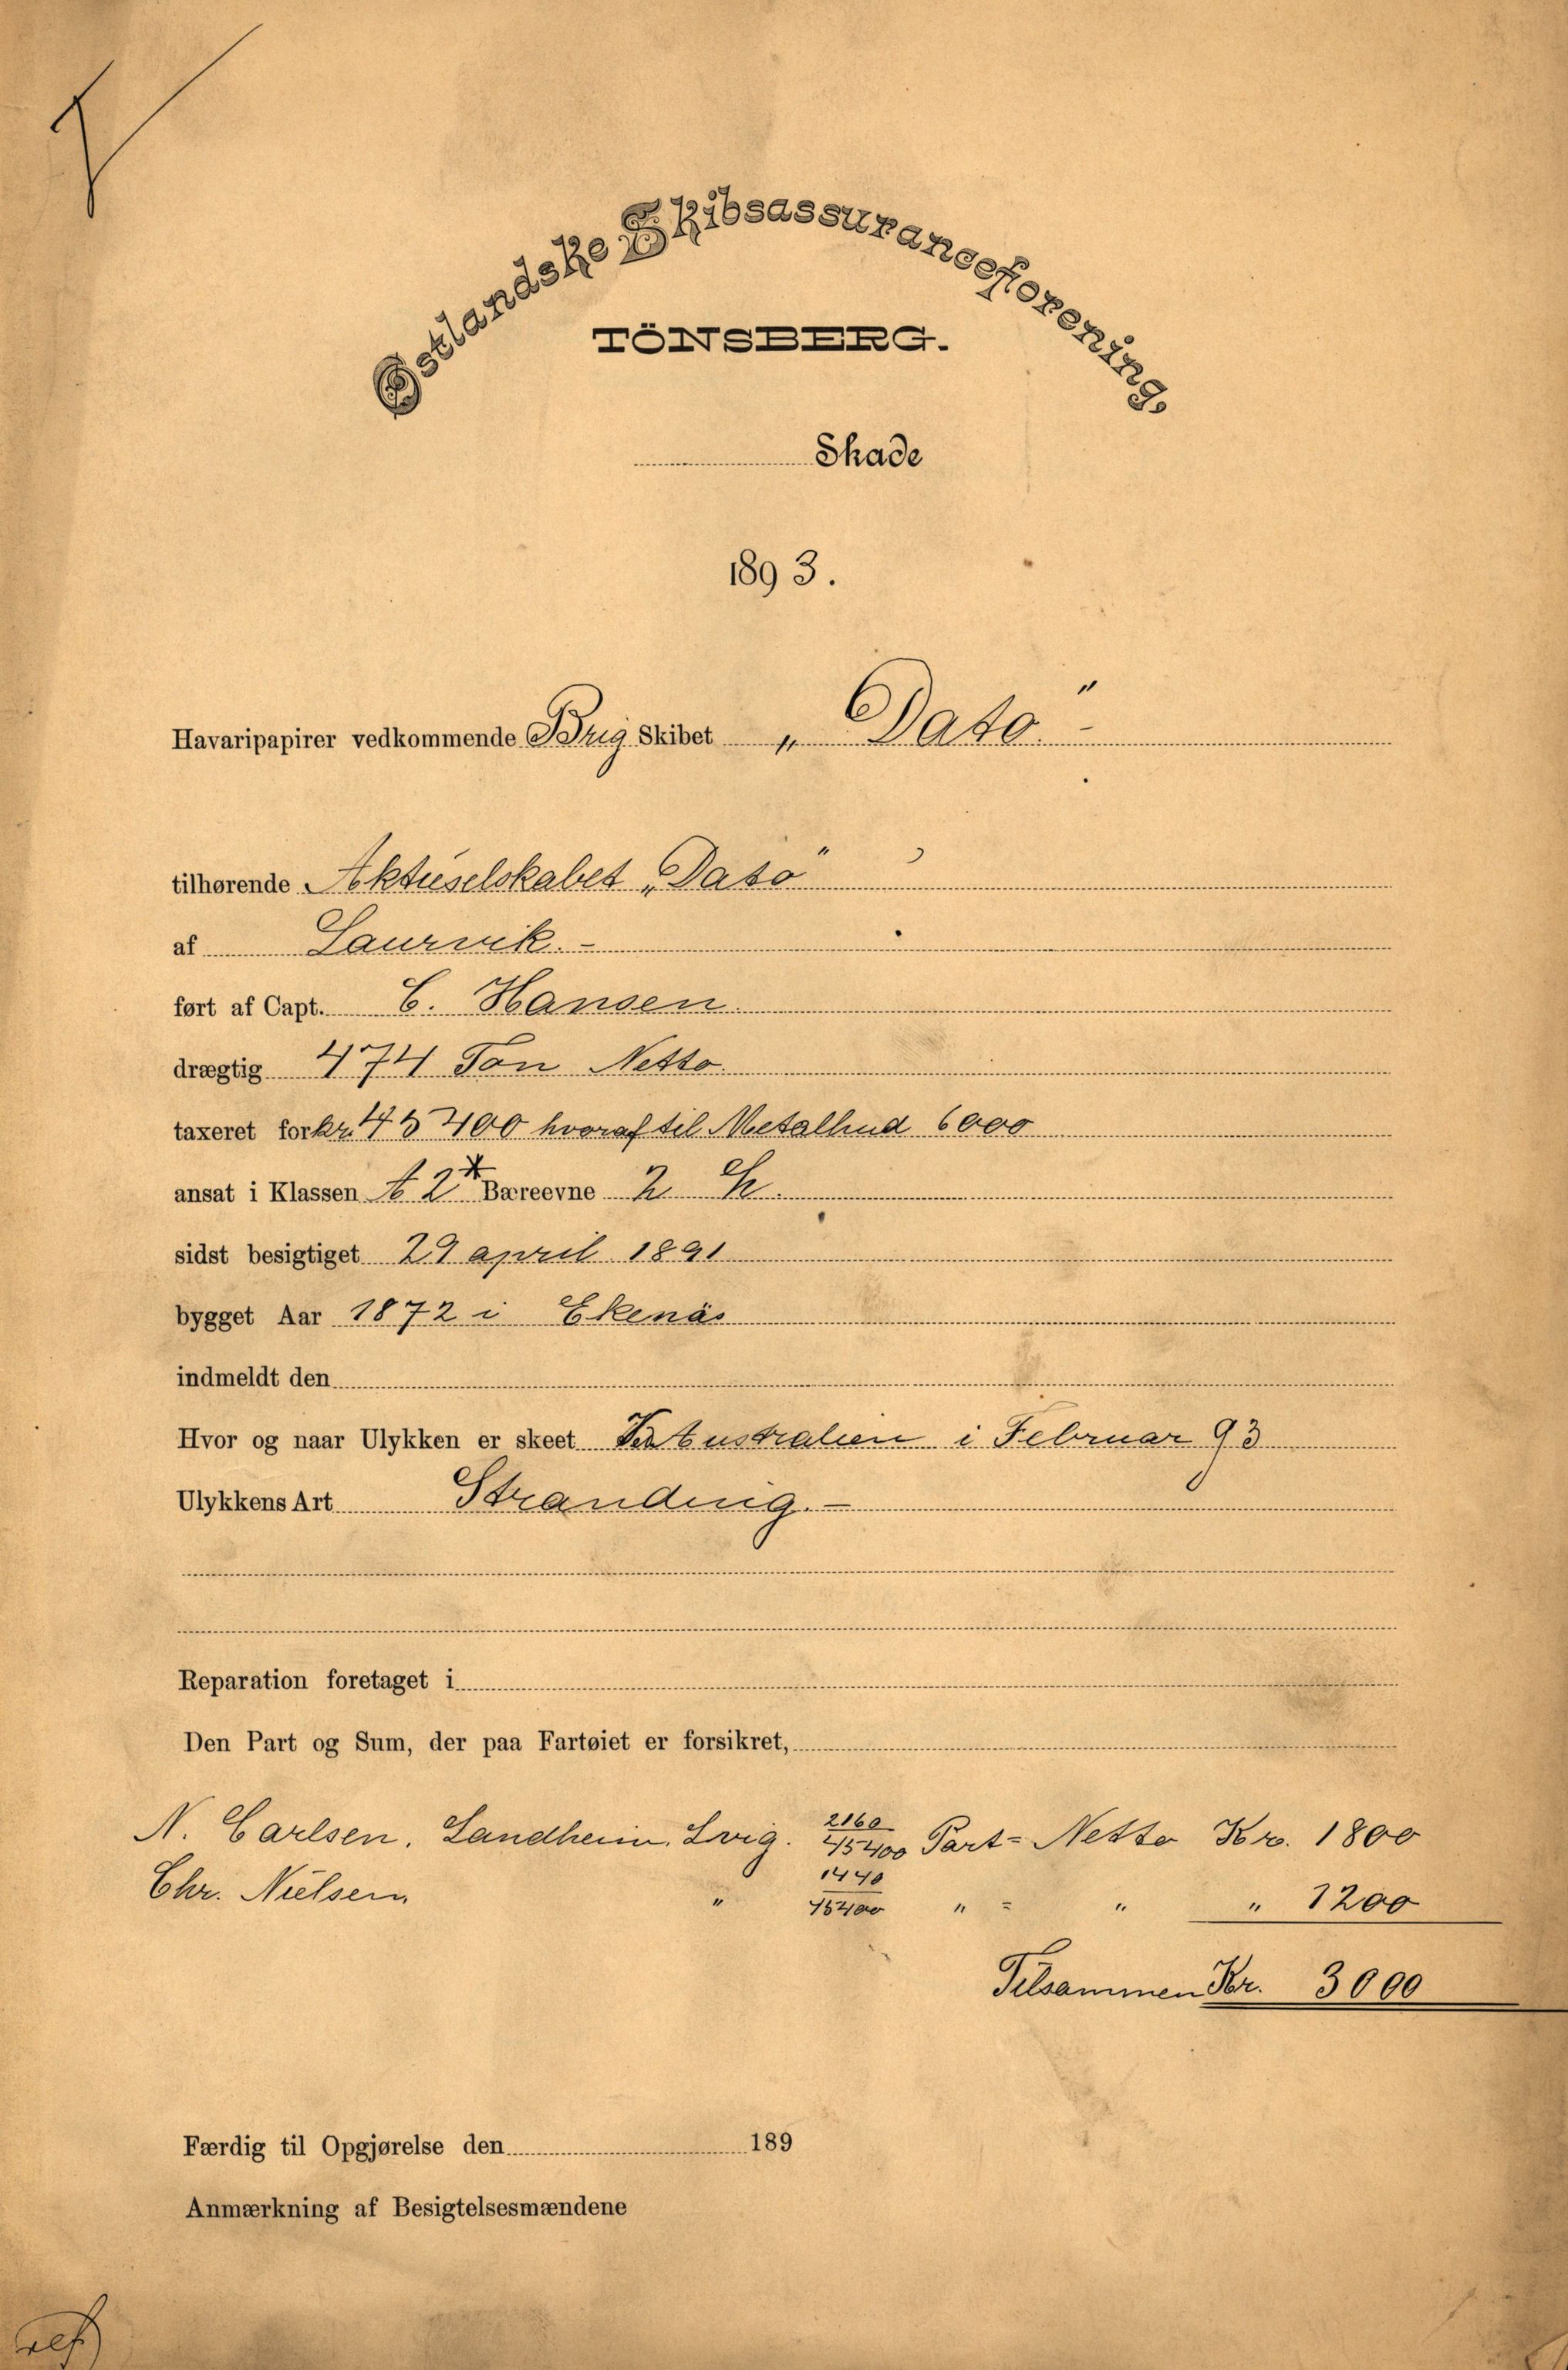 Østlandske Skibsassuranceforening,
TÖNSBERG.
Skade
1893.
Havaripapirer vedkommende Brig Skibet „Dato."-
tilhørende Aktieselskabet „Dato"
af Laurvik.-
ført af Capt. C. Hansen.
drægtig 474 Ton Netto.
taxeret for kr. 45400 hvoraf til Metalhud 6000
ansat i Klassen A 2* Bæreevne
sidst besigtiget 29 april 1891
bygget Aar 1872 i Ekenäs
indmeldt den
Hvor og naar Ulykken er skeet Australien i Februar 93
Ulykkens Art Stranding.-
Reparation foretaget i
Den Part og Sum, der paa Fartøiet er forsikret,
N. Carlsen, Landheim, Lvig. 2160/45400 Part = Netto Kr. 1800
Chr. Nielsen " 1440/45400 " = " " 1200
Tilsammen Kr. 3000
Færdig til Opgjørelse den 189
Anmærkning af Besigtelsesmændene